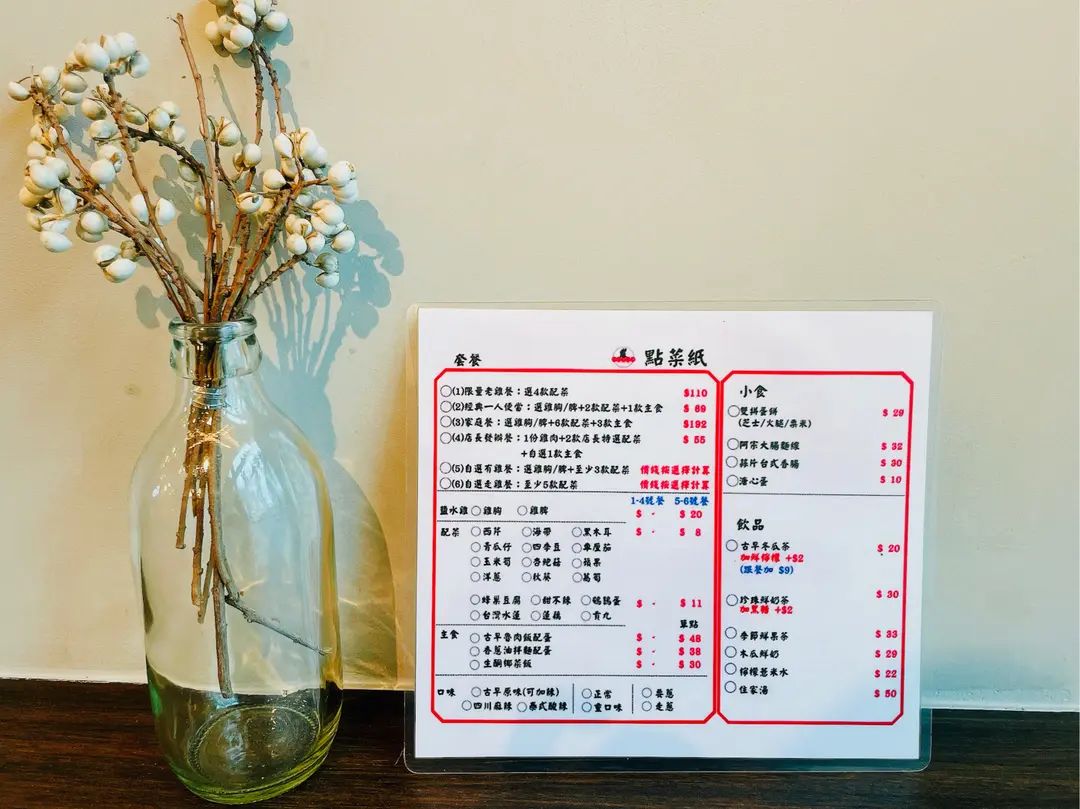 套餐
點菜紙
○(1)限量老雞餐：選4款配菜 $110
○(2)經典一人便當：選雞胸/脾+2款配菜+1款主食 $ 69
○(3)家庭餐：選雞胸/脾+6款配菜+3款主食 $192
○(4)店長發辦餐：1份雞肉+2款店長特選配菜 $ 55
+自選1款主食
○(5)自選有雞餐：選雞胸/脾+至少3款配菜 價錢按選擇計算
○(6)自選走雞餐：至少5款配菜 價錢按選擇計算
1-4號餐 5-6號餐
鹽水雞 ○雞胸 ○雞脾 $ - $ 20
配菜 ○西芹 ○海帶 ○黑木耳 $ - $ 8
○青瓜仔 ○四季豆 ○車厘茄
○玉米筍 ○杏鮑菇 ○蘋果
○洋蔥 ○秋葵 ○萵筍
○蜂巢豆腐 ○甜不辣 ○鵪鶉蛋 $ - $ 11
○台灣水蓮 ○蓮藕 ○貢丸
單點
主食 ○古早魯肉飯配蛋 $ - $ 48
○香蔥油拌麵配蛋 $ - $ 38
○生酮椰菜飯 $ - $ 30
口味 ○古早原味(可加辣) ○正常 ○要蔥
○四川麻辣 ○泰式酸辣 ○重口味 ○走蔥
小食
○雙拼蛋餅 $ 29
(芝士/火腿/粟米)
○阿宗大腸麵線 $ 32
○蒜片台式香腸 $ 30
○溏心蛋 $ 10
飲品
○古早冬瓜茶 $ 20
加鮮檸檬 +$2
(跟餐加 $9)
○珍珠鮮奶茶 $ 30
加黑糖 +$2
○季節鮮果茶 $ 33
○木瓜鮮奶 $ 29
○檸檬薏米水 $ 22
○住家湯 $ 50